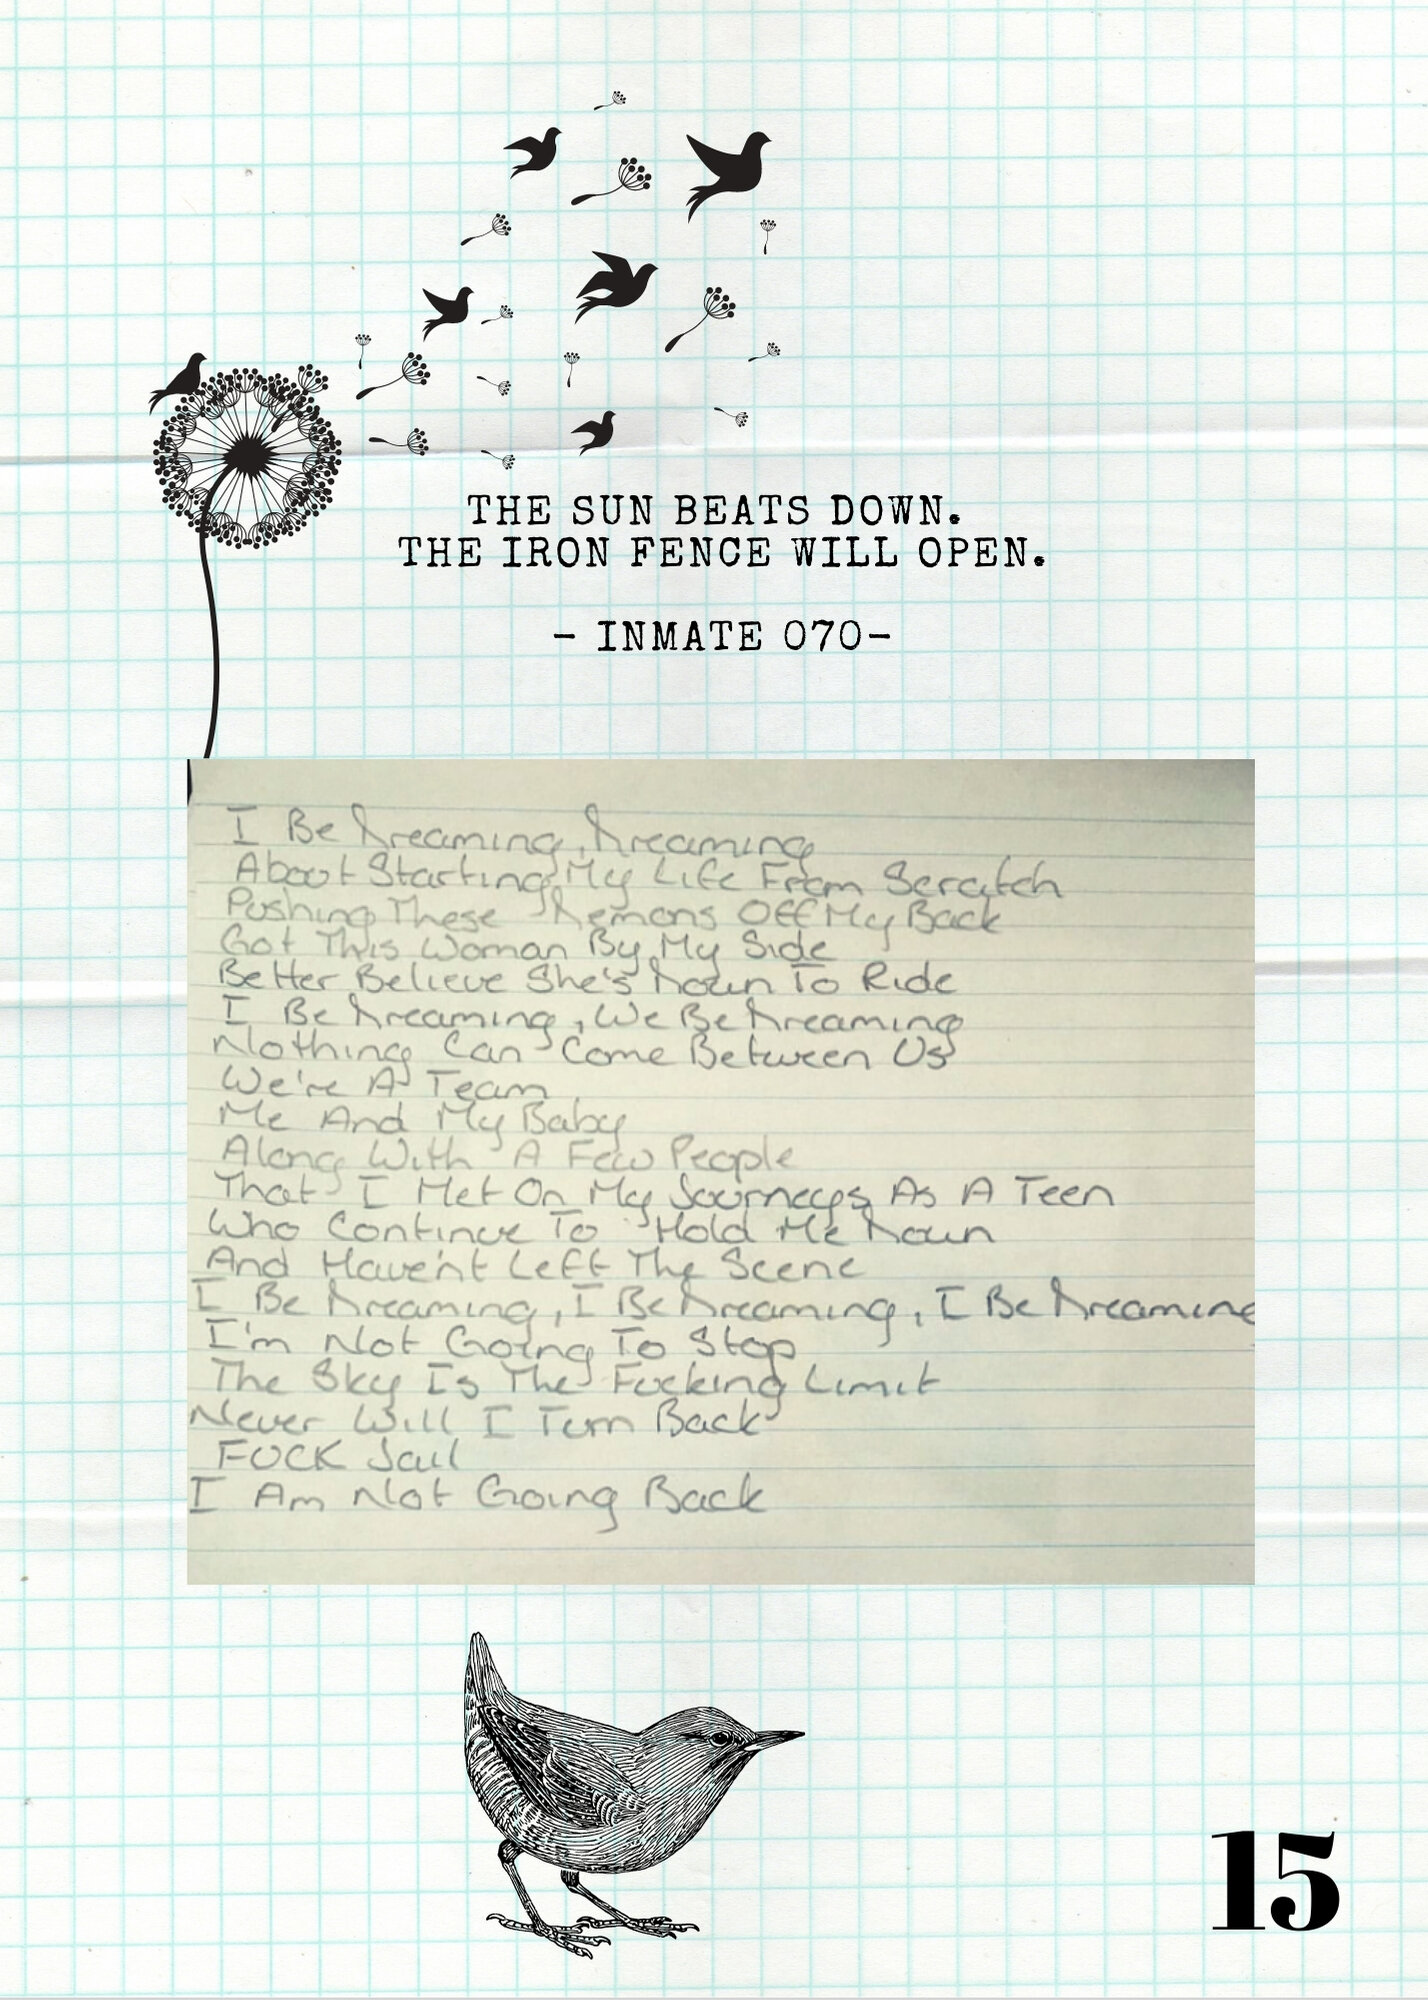 THE SUN BEATS DOWN.
THE IRON FENCE WILL OPEN.
- INMATE 070-
I Be Dreaming, Dreaming
About Starting My Life From Scratch
Pushing These Demons Off My Back
Got This Woman By My Side
Better Believe She's Down To Ride
I Be Dreaming, We Be Dreaming
Nothing Can Come Between Us
We're A Team
Me And My Baby
Along With A Few People
That I Met On My Journeys As A Teen
Who Continue To Hold Me Down
And Have'nt Left The Scene
I Be Dreaming, I Be Dreaming, I Be Dreaming
I'm Not Going To Stop
The Sky Is The Fucking Limit
Never Will I Turn Back
FUCK Jail
I Am Not Going Back
15